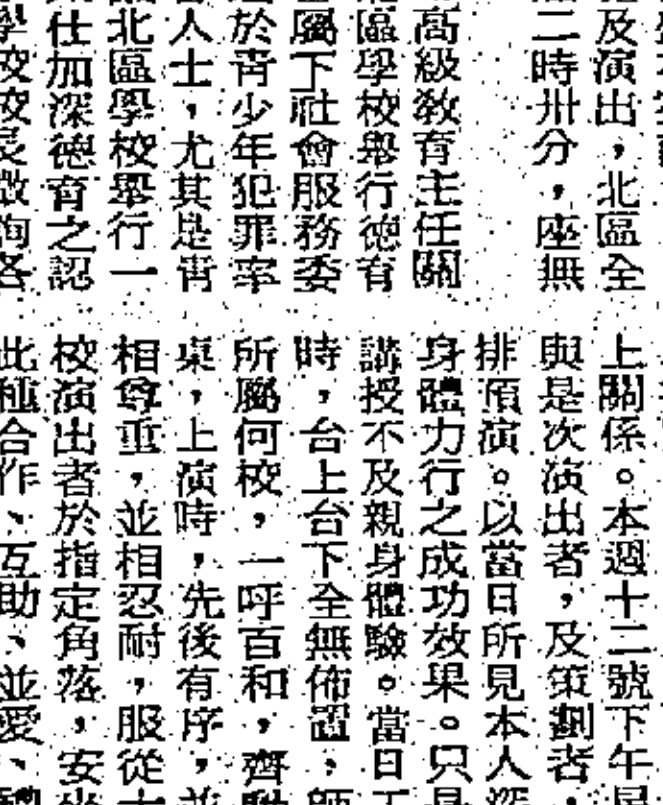 及演出，北區全
二時卅分，座無
高級教育主任關
區學校舉行德育
屬下社會服務委
於青少年犯罪率
人士，尤其是青
北區學校舉行一
仕加深德育之認
學校校長徵詢各
上關係。本週十二號下午
與是次演出者，及策劃者，
排預演。以當日所見本人深
身體力行之成功效果。只是
講授不及親身體驗。當日
時，台上台下全無佈置，師
所屬何校，一呼百和，齊
桌，上演時，先後有序，並
相尊重，並相忍耐，服從
校演出者於指定角落，安坐
此種合作、互助、並愛、